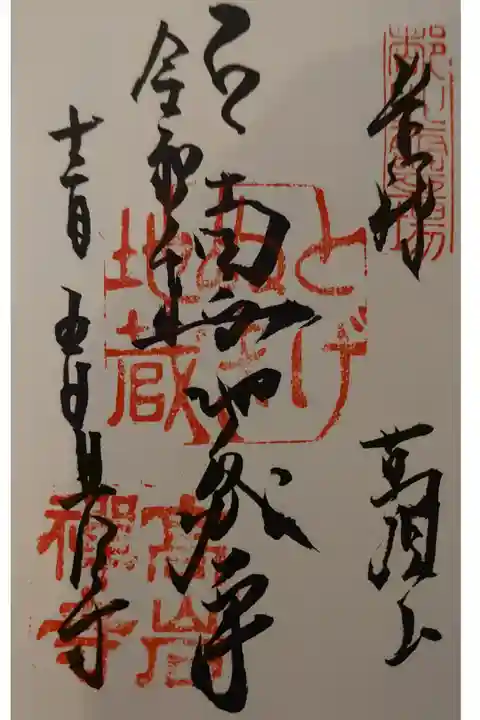 奉拝
萬頂山
南無地蔵尊
令和
年
十二月
五日
高岩寺
とげぬき地蔵
高岩禅寺